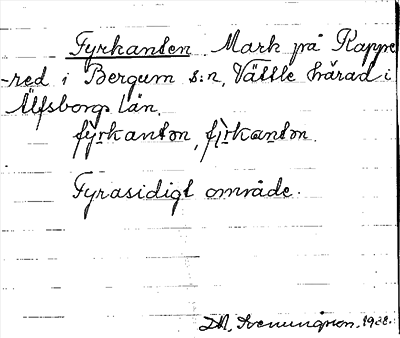 Fyrkanten. Mark på Rappe
-red i Bergum s:n, Vättle härad i
Älfsborgs län.
fyrkantən, fyrkantən.
Fyrasidigt område.